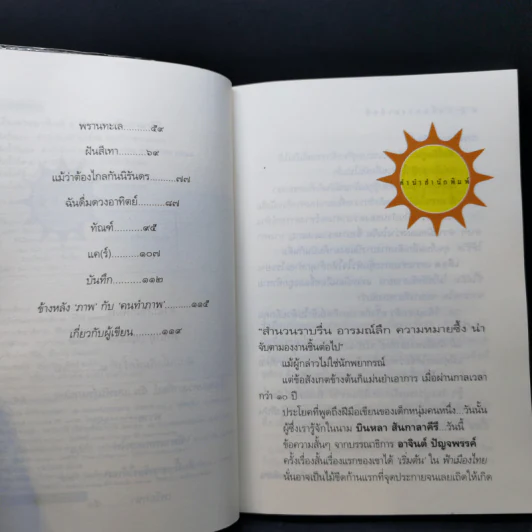 พรานทะเล..........๕๙
ฝันสีเทา..........๖๙
แม้ว่าต้องไกลกันนิรันดร..........๗๗
ฉันดื่มดวงอาทิตย์..........๘๗
ทัณฑ์..........๙๕
แค(ร์)..........๑๐๗
บันทึก..........๑๑๒
ข้างหลัง 'ภาพ' กับ 'คนทำภาพ'..........๑๑๕
เกี่ยวกับผู้เขียน..........๑๑๙
คำนำสำนักพิมพ์
"สำนวนราบรื่น อารมณ์ลึก ความหมายซึ้ง น่า
จับตามองงานชิ้นต่อไป"
แม้ผู้กล่าวไม่ใช่นักพยากรณ์
แต่ข้อสังเกตข้างต้นก็แม่นยำเอาการ เมื่อผ่านกาลเวลา
กว่า ๑๐ ปี
ประโยคที่พูดถึงฝีมือเขียนของเด็กหนุ่มคนหนึ่ง...วันนั้น
ผู้ซึ่งเรารู้จักในนาม บินหลา สันกาลาคีรี...วันนี้
ข้อความสั้นๆ จากบรรณาธิการ อาจินต์ ปัญจพรรค์
ครั้งเรื่องสั้นเรื่องแรกของเขาได้ 'เริ่มต้น' ใน ฟ้าเมืองไทย
นั่นอาจเป็นไม้ขีดก้านแรกที่จุดประกายจนเลยเถิดให้เกิด